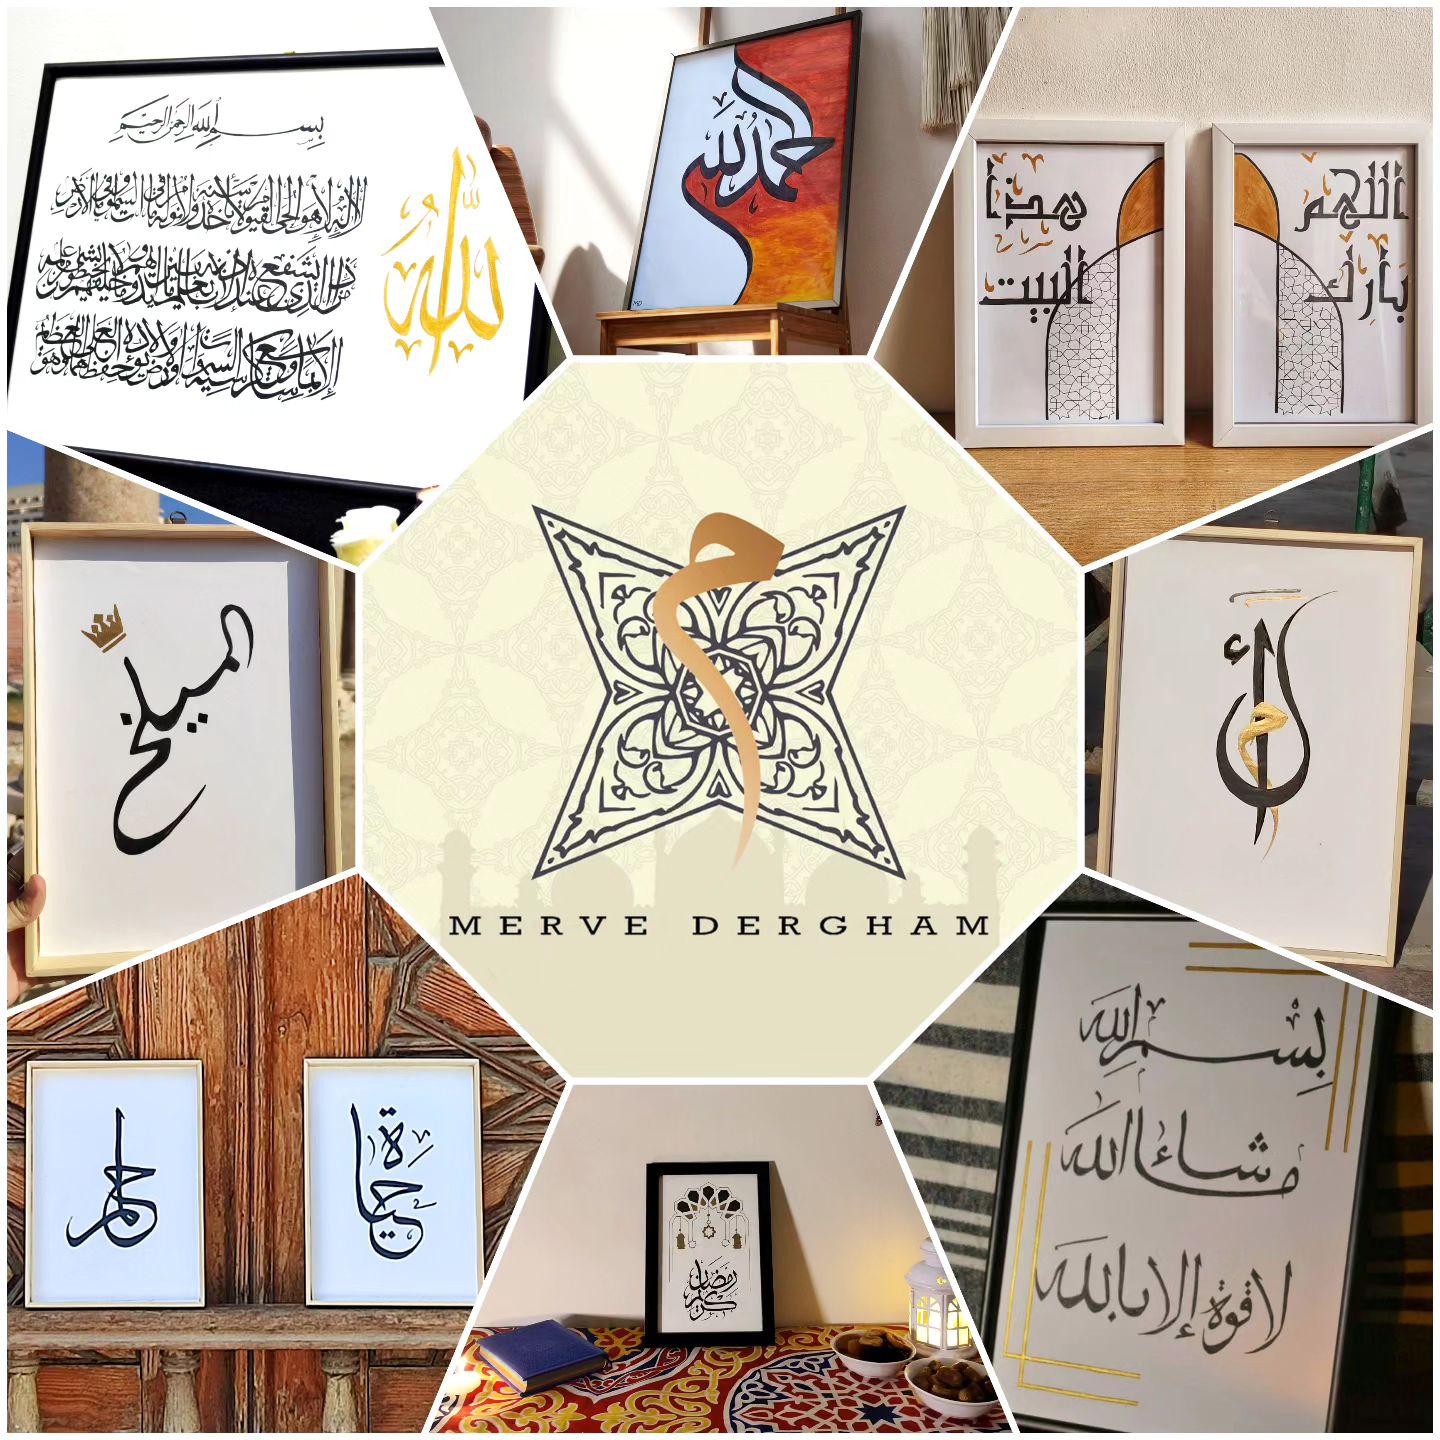 بسم الله الرحمن الرحيم
الله
لا إله إلا هو الحي القيوم لا تأخذه سنة ولا نوم له ما في السموات وما في الأرض
من ذا الذي يشفع عنده إلا بإذنه يعلم ما بين أيديهم وما خلفهم ولا يحيطون بشيء من علمه
إلا بما شاء وسع كرسيه السموات والأرض ولا يؤده حفظهما وهو العلي العظيم
الحمد لله
اللهم
بارك
هذا
البيت
م
MERVE DERGHAM
حلم
حياة
رمضان
كريم
بسم الله
ما شاء الله
لا قوة إلا بالله